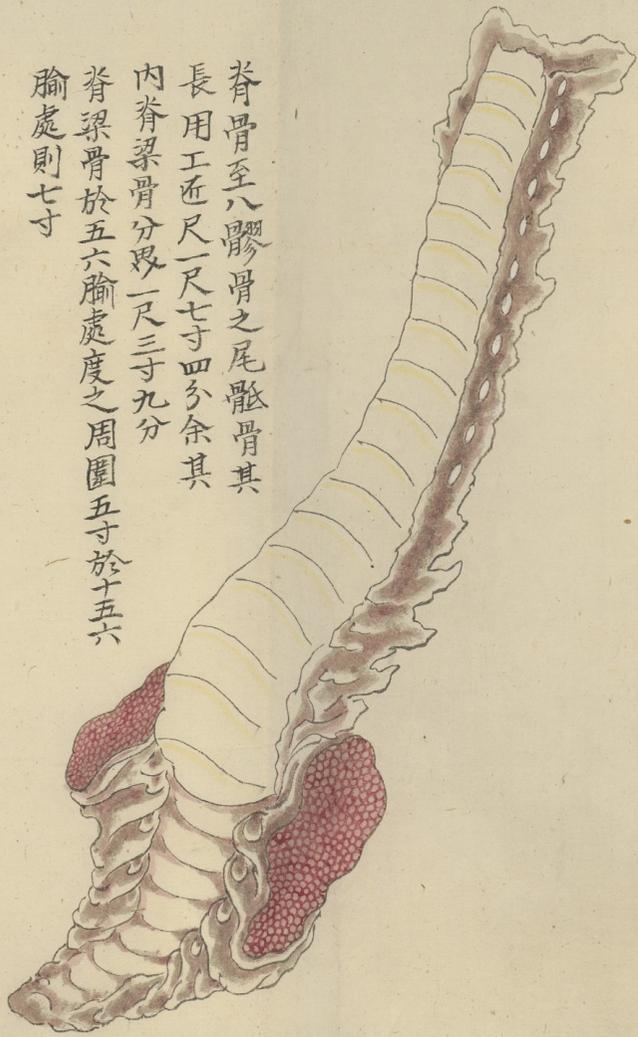 脊骨至八髎骨之尾骶骨其
長用工匠尺一尺七寸四分余其
内脊梁骨分界一尺三寸九分
脊梁骨於五六腧處度之周圍五寸於十五六
腧處則七寸